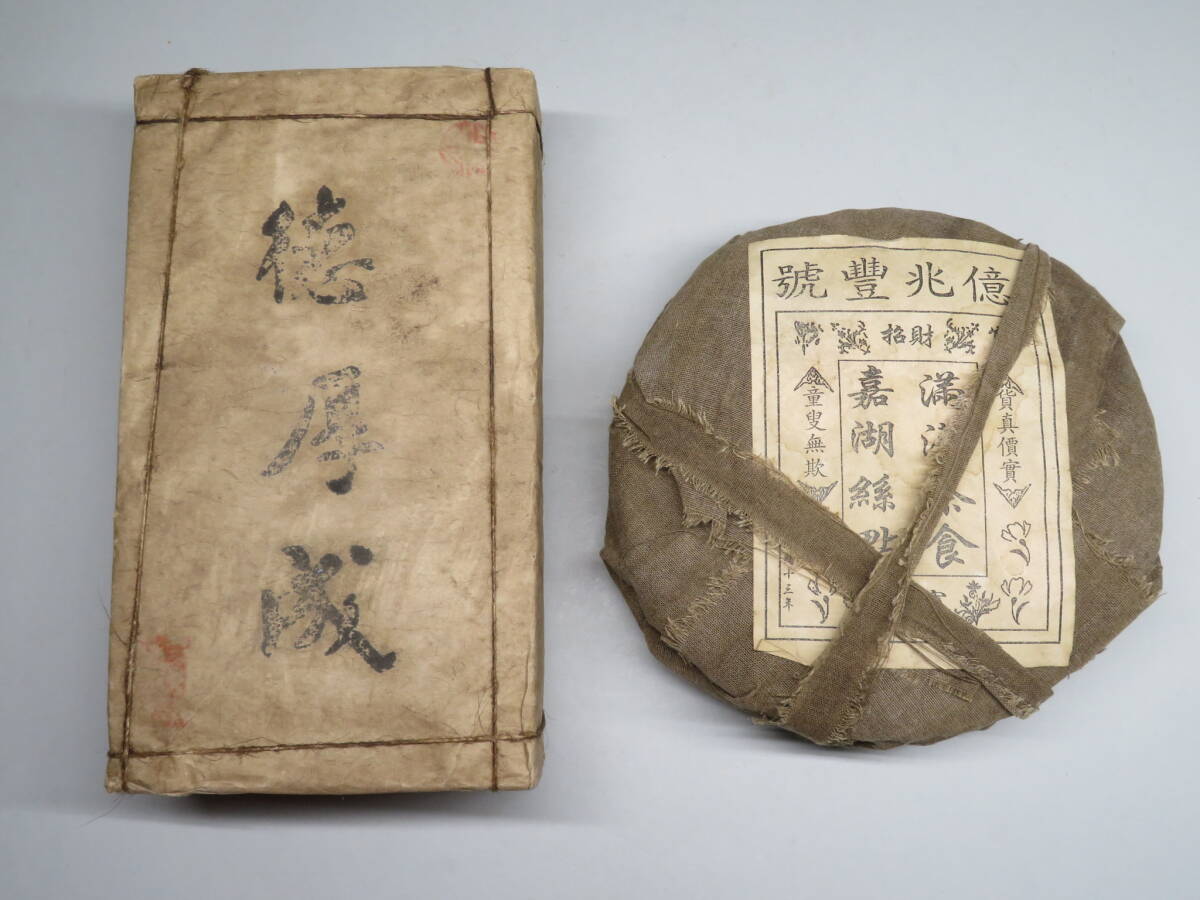 德厚成
億兆豐號
招財
貨真價實
童叟無欺
滿
食
嘉湖絲點
十三年